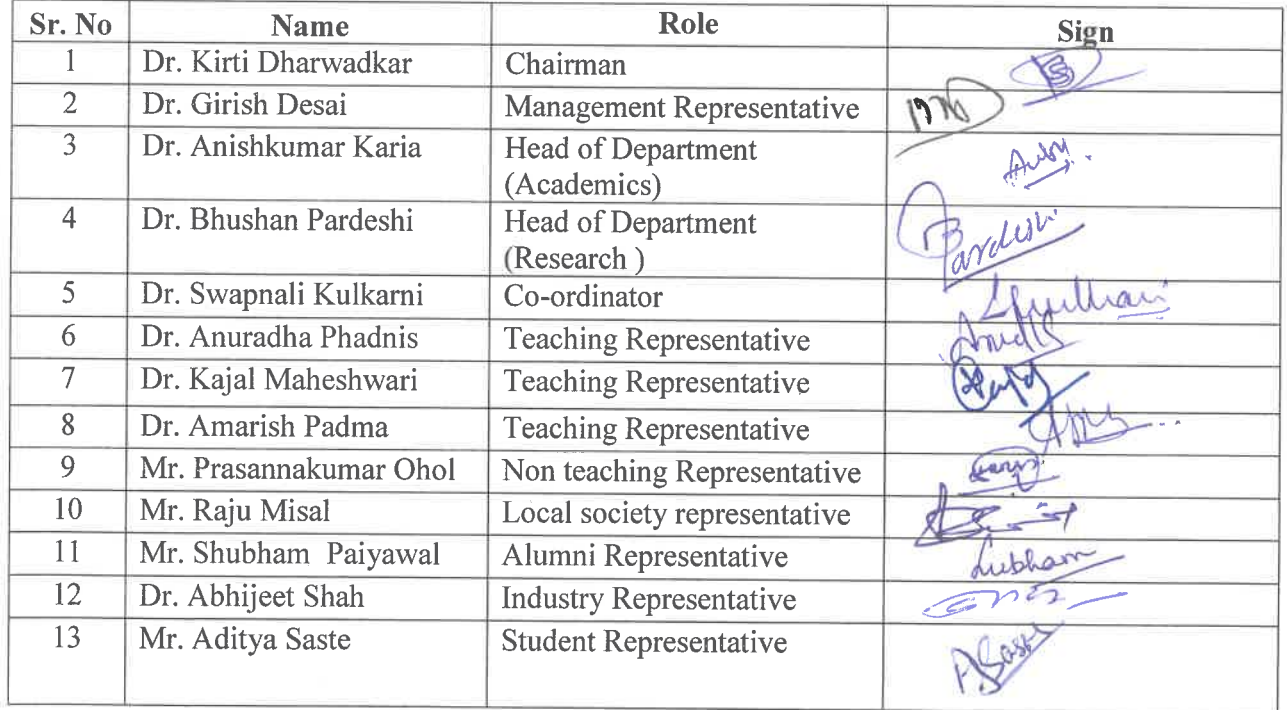 Sr. No Name Role Sign
1 Dr. Kirti Dharwadkar Chairman
2 Dr. Girish Desai Management Representative
3 Dr. Anishkumar Karia Head of Department
(Academics)
4 Dr. Bhushan Pardeshi Head of Department
(Research )
Pardeshi
5 Dr. Swapnali Kulkarni Co-ordinator
6 Dr. Anuradha Phadnis Teaching Representative
7 Dr. Kajal Maheshwari Teaching Representative
8 Dr. Amarish Padma Teaching Representative
9 Mr. Prasannakumar Ohol Non teaching Representative
10 Mr. Raju Misal Local society representative
11 Mr. Shubham Paiyawal Alumni Representative
12 Dr. Abhijeet Shah Industry Representative
13 Mr. Aditya Saste Student Representative